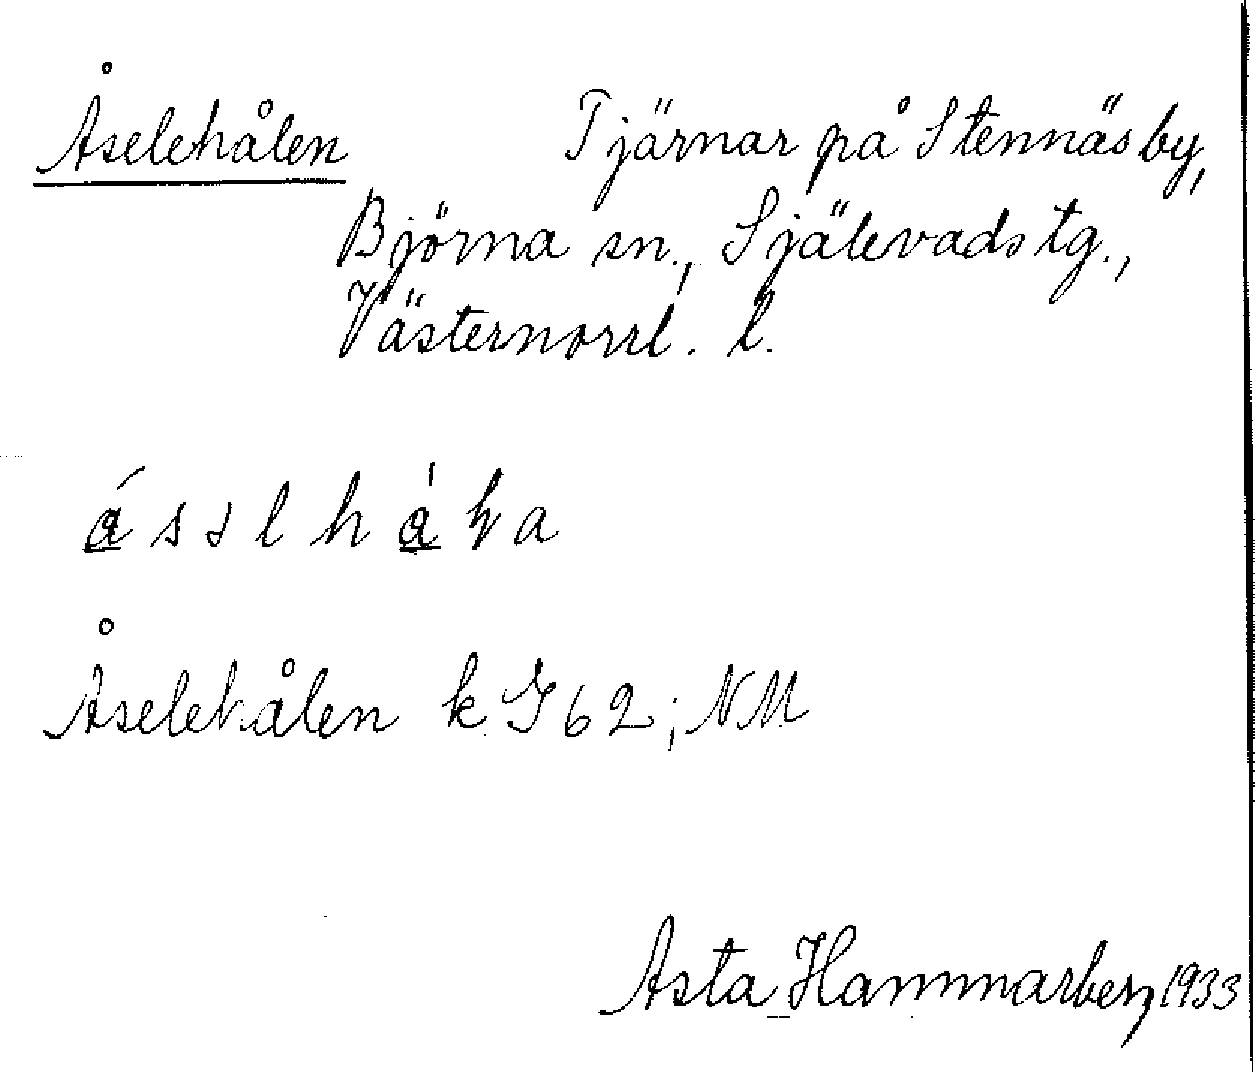 Åselehålen Tjärnar på Stennäs by,
Björna sn., Själevads tg.,
Västernorrl. l.
Åselehålen k. J 62; NM
Asta Hammarberg 1933